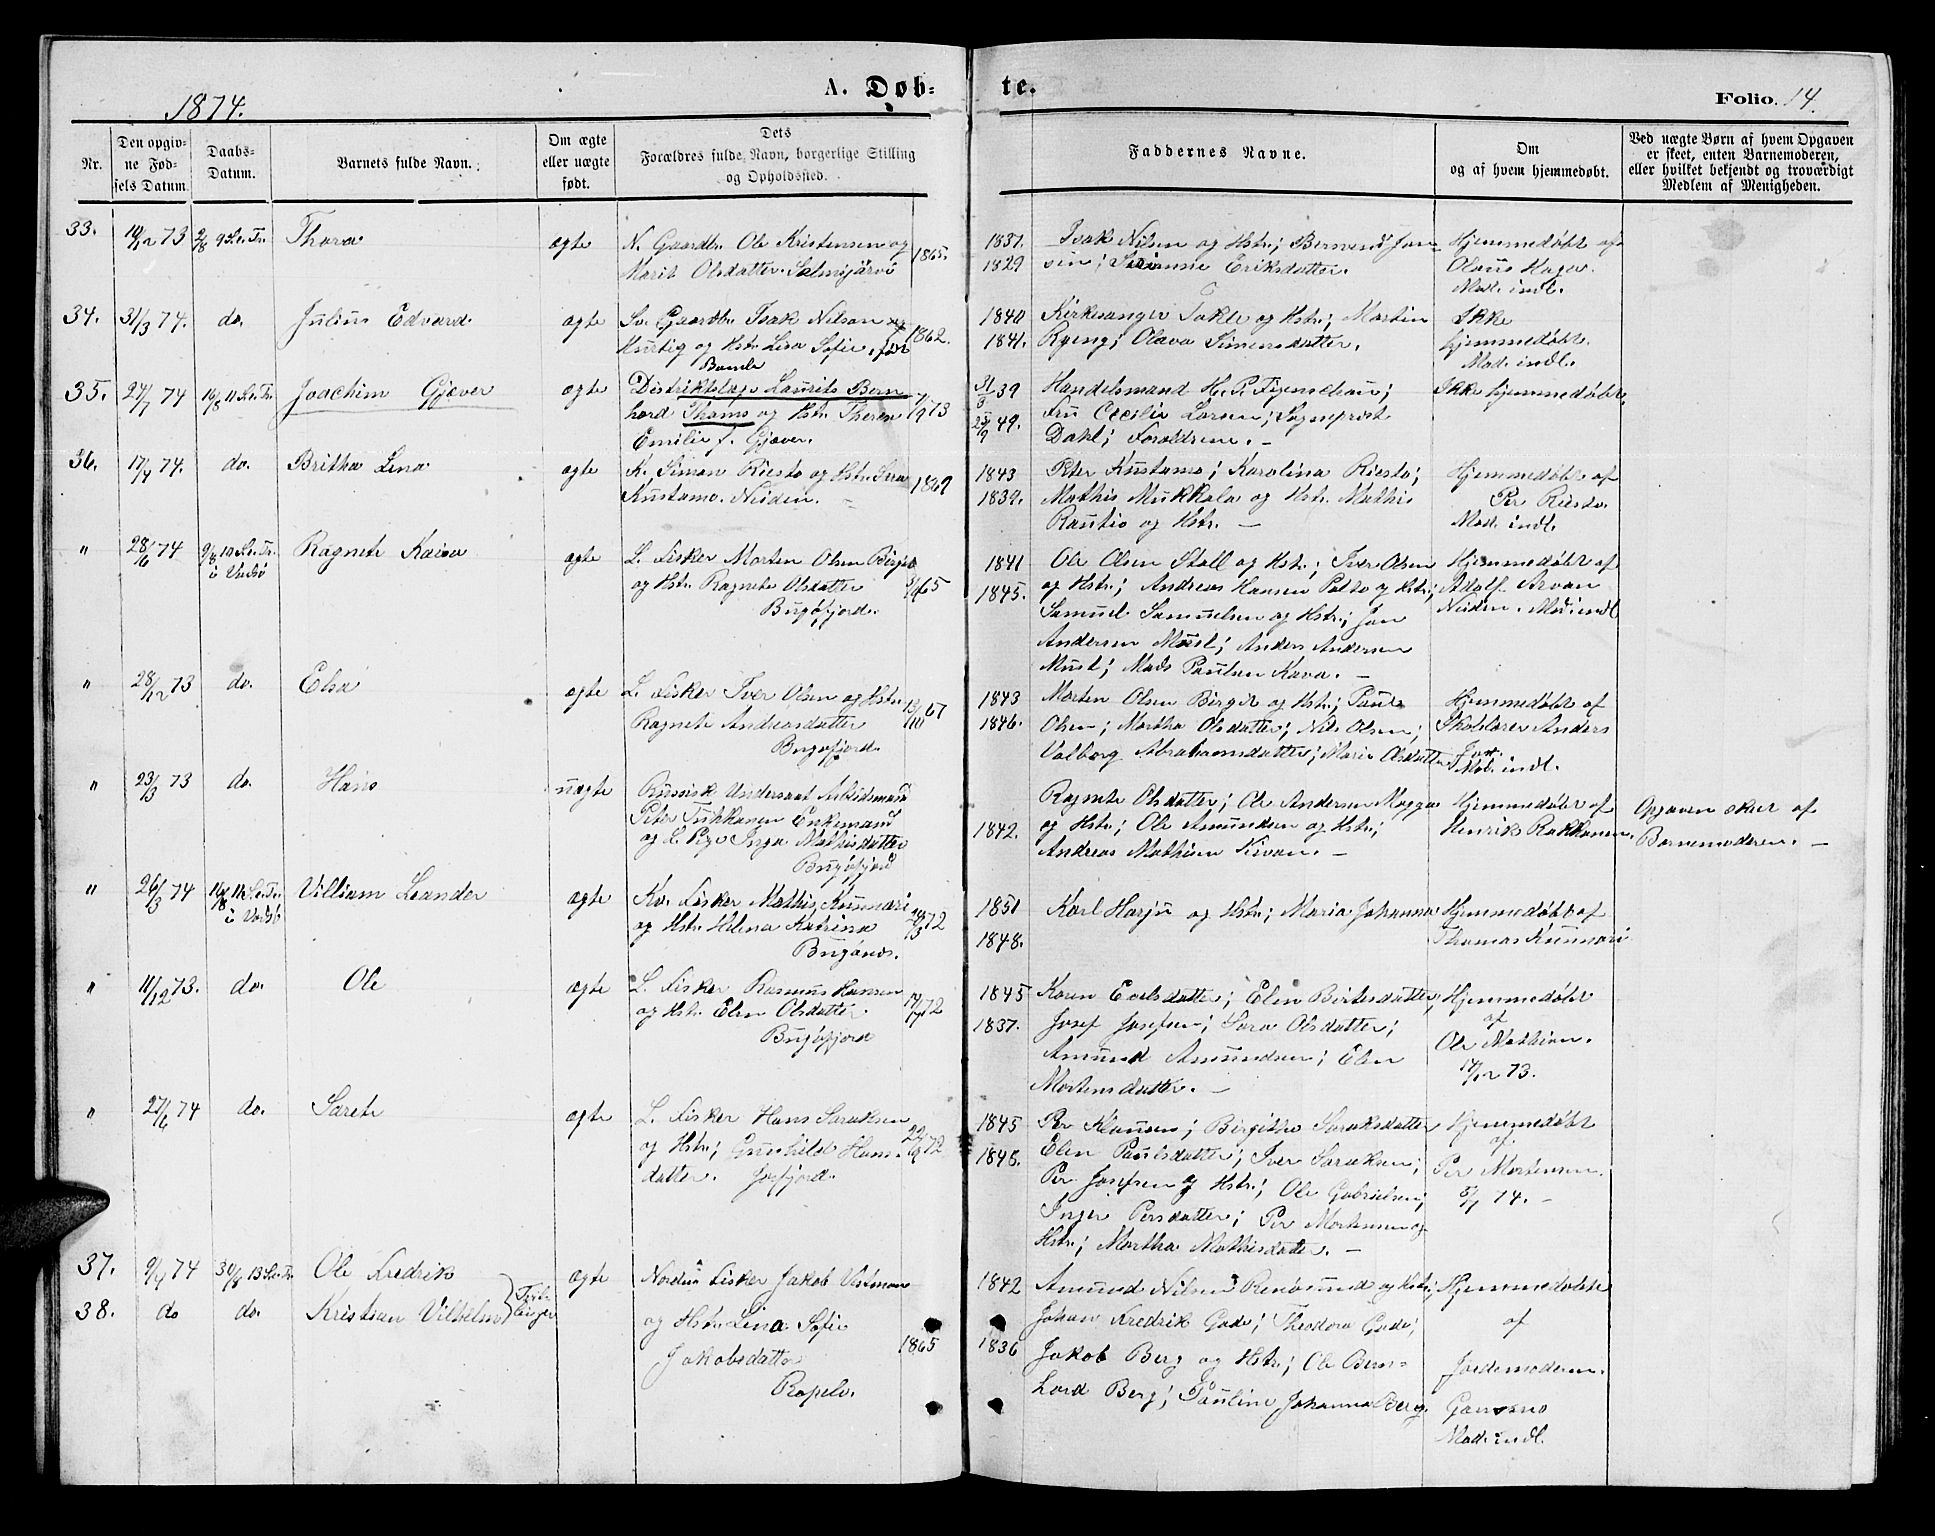 1874.
A. Døb-
te.
Folio. 14.
Nr.
Den opgiv-
ne Fød-
sels Datum.
Daabs-
Datum.
Barnets fulde Navn.
Om ægte
eller uægte
født.
Dets
Forældres fulde Navn, borgerlige Stilling
og Opholdssted.
Faddernes Navne.
Om
og af hvem hjemmedøbt.
Ved uægte Børn af hvem Opgaven
er skeet, enten Barnemoderen,
eller hvilket bekjendt og troværdigt
Medlem af Menigheden.
33. 10/12 73 2/8 9 S.e.Tr. Thora ægte N. Gaardbr. Ole Kristensen og 1865.
Marit Olsdatter. Salmijärvi
1837. Isak Nilsen og Hstr; Bersvend Jon-
1829 sen; Eriksdatter.
Hjemmedøbt af
Olaus Hager.
Mod. indl.
34. 31/3 74. do. Julius Edvard ægte Sv. Gaardbr. Isak Nilsen
Hurtig og Hstr. Lisa Sofie 1862.
1840 Kirkesanger Takle og Hstr; Martin
1841. Ryeng; Olava Simensdatter.
Ikke
hjemmedøbt.
Mod. indl.
35. 27/7 74 16/8 11 S.e.Tr. Joachim Gjæver ægte Distriktslæge Laurits Bern
hard Thams og Hstr. Therese
Emilie f. Gjæver.
39 Handelsmand H. P. Figenschau;
49. Fru Cecilie Larsen; Sogneprest
Dahl; Forældrene. —
Ikke hjemmedøbt.
36. 17/7 74. do. Britha Lena ægte K. Simon Riesto og Hstr. 1869
Kustamo. Neiden. —
1843 Peter Kustamo; Karolina Riesto;
1839. Mathis Mukkala og Hstr. Mathis
Rautio og Hstr. —
Hjemmedøbt af
Per Riesto.
Mod. indl.
" 28/6 74 9/8 10 S.e.Tr. i Vadsø Ragnete Kaisa ægte L. Fisker Morten Olsen
og Hstr Ragnete Olsdatter 65
Bugøfjord.
1841 Ole Olsen Stall og Hstr; Iver Olsen
1845. og Hstr; Andreas Hansen Palto og Hstr;
Samuel Samuelsen og Hstr; Jon
Andersen Must; Anders Andersen
Must; Mads Paulsen Kava. —
Hjemmedøbt af
Adolf Arvan
Neiden. Mod indl
" 28/12 73 do. Elsa ægte L. Fisker Iver Olsen og Hstr 13/10 67
Ragnete Andreasdatter
Bugøfjord.
1843 Morten Olsen Birgit og Hstr; Paul
1846. Olsen; Martha Olsdatter; Nils Olsen;
Valborg Abrahamsdatter; Marie Olsdatter
Hjemmedøbt af
Skolelærer Anders
Mod. indl.
" 23/3 73 do. Hans uægte Russisk Undersaat Arbeidsmand
Peter Enkemand
og L. Pige Inga Mathisdatter
Bugøfjord
1842. Ragnete Olsdatter; Ole Andersen Magga
og Hstr; Ole Amundsen og Hstr;
Andreas Mathisen Kivan. —
Hjemmedøbt af
Henrik
Opgaven skeet af
Barnemoderen. —
" 26/3 74 16/8 11 S.e.Tr. i Vadsø Villiam Leander ægte Kv. Fisker Mathis Kunnari 72
og Hstr. Helena Katrina
Bugønes.
1851 Karl Harju og Hstr; Maria Johanna
1848.
Hjemmedøbt af
Thomas Kunnari
" 11/12 73. do. Ole ægte L. Fisker Rasmus Hansen
og Hstr. Elen Olsdatter 72
Bugøfjord
1845 Karen Evelsdatter; Elen Birtesdatter;
1837. Josef Josefsen; Sara Olsdatter;
Amund Amundsen; Elen
Mortensdatter. —
Hjemmedøbt
af
Ole Mathisen.
14/12 73.
" 27/6 74 do. Sarete ægte L. Fisker Hans Saraksen
og Hstr; Gunhild Hans- 72
datter. Jarfjord.
1845 Per Klausen; Birgitte Saraksdatter
1848. Elen Paulsdatter; Iver Saraksen;
Per Josefsen og Hstr; Ole Gabrielsen;
Inger Persdatter; Per Mortensen og
Hstr; Martha Mathisdatter. —
Hjemmedøbt
af
Per Mortensen.
5/7 74. —
37. 9/4 74 30/8 13 S.e.Tr. Ole Fredrik
38. do do. Kristian Vilhelm
Tvil-
linger
ægte Nordm. Fisker Jakob Vestman
og Hstr. Lina Sofie
Jakobsdatter 1865
Ropelv.
1842 Amund Nilsen Renøsund og Hstr;
Johan Fredrik Gade; Theodora Gade;
1836 Jakob Berg og Hstr; Ole Bern-
hard Berg; Pauline Johanna Berg.
Hjemmedøbte
af
Jordemoderen.
Mod. indl.